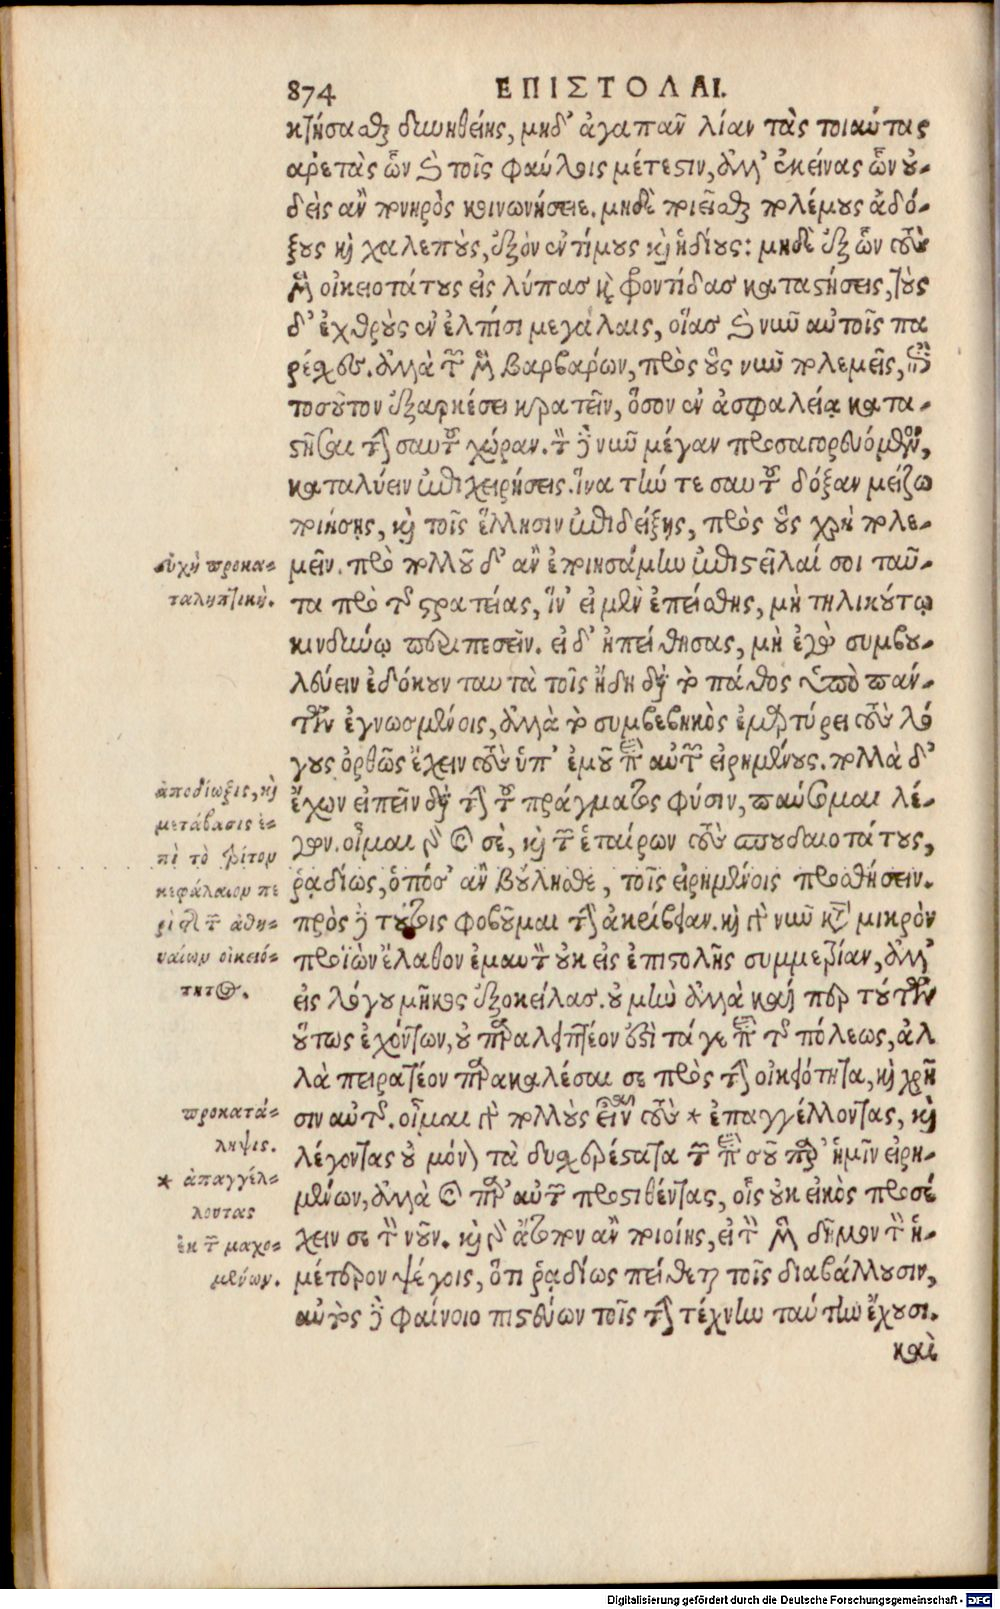 874 ΕΠΙΣΤΟΛΑΙ.
κτήσασθαι δυνηθείης, μηδ' ἀγαπᾶν λίαν τὰς τοιαύτας
ἀρετὰς ὧν καὶ τοῖς φαύλοις μέτεστιν, ἀλλ' ἐκείνας ὧν οὐ-
δεὶς ἂν πονηρὸς κοινωνήσειε. μηδὲ ποιεῖσθαι πολέμους ἀδό-
ξους καὶ χαλεποὺς, ἐξὸν ἐντίμους καὶ ῥᾳδίους: μηδὲ ἐξ ὧν τοὺς
μὲν οἰκειοτάτους εἰς λύπας καὶ φροντίδας καταστήσεις, τοὺς
δ' ἐχθροὺς ἐν ἐλπίσι μεγάλαις, οἵας καὶ νῦν αὐτοῖς πα
ρέσχες. ἀλλὰ τῶν μὲν βαρβάρων, πρὸς οὓς νῦν πολεμεῖς, ἐπὶ
τοσοῦτον ἐξαρκέσει κρατεῖν, ὅσον ἐν ἀσφαλείᾳ κατα-
στῆσαι τὴν σαυτοῦ χώραν. τὸν δὲ νῦν μέγαν προσαγορευόμενον,
καταλύειν ἐπιχειρήσεις. ἵνα τήν τε σαυτοῦ δόξαν μείζω
ποιήσῃς, καὶ τοῖς ἕλλησιν ἐπιδείξῃς, πρὸς οὓς χρὴ πολε-
εὐχὴ προκα- μεῖν. πρὸ πολλοῦ δ' ἂν ἐποιησάμην ἐπιστεῖλαί σοι ταῦ-
ταληπτική. τα πρὸ τῆς στρατείας, ἵν' εἰ μὲν ἐπείσθης, μὴ τηλικούτῳ
κινδύνῳ περιπεσεῖν. εἰ δ' ἠπείθησας, μὴ ἐγὼ συμβου-
λεύειν ἐδόκουν ταυτὰ τοῖς ἤδη διὰ τὸ πάθος ὑπὸ πάν-
των ἐγνωσμένοις, ἀλλὰ τὸ συμβεβηκὸς ἐμαρτύρει τοὺς λό
γους ὀρθῶς ἔχειν τοὺς ὑπ' ἐμοῦ περὶ αὐτῶν εἰρημένους. πολλὰ δ'
ἀποδίωξις, καὶ ἔχων εἰπεῖν διὰ τὴν τοῦ πράγματος φύσιν, παύσομαι λέ-
μετάβασις ἐ- γων. οἶμαι γὰρ καὶ σὲ, καὶ τῶν ἑταίρων τοὺς σπουδαιοτάτους,
πὶ τὸ τρίτον ῥᾳδίως, ὁπόσ' ἂν βούλησθε, τοῖς εἰρημένοις προσθήσειν.
κεφάλαιον πε πρὸς δὲ τούτοις φοβοῦμαι τὴν ἀκαιρίαν. καὶ γὰρ νῦν κατὰ μικρὸν
ρὶ τῆς τῶν ἀθη- προϊὼν ἔλαθον ἐμαυτὸν οὐκ εἰς ἐπιστολῆς συμμετρίαν, ἀλλ'
ναίων οἰκειό- εἰς λόγου μῆκος ἐξοκείλας. οὐ μὴν ἀλλὰ καίπερ τούτων
τητος. οὕτως ἐχόντων, οὐ παραλειπτέον ἐστὶ τά γε περὶ τῆς πόλεως, ἀλ
λὰ πειρατέον παρακαλέσαι σε πρὸς τὴν οἰκειότητα, καὶ χρῆ
προκατά- σιν αὐτῆς. οἶμαι γὰρ πολλοὺς εἶναι τοὺς * ἐπαγγέλλοντας, καὶ
ληψις. λέγοντας οὐ μόνον τὰ δυσχερέστατα τῶν περὶ σοῦ παρ' ἡμῖν εἰρη-
* ἀπαγγέλ- μένων, ἀλλὰ καὶ παρ' αὐτῶν προστιθέντας, οἷς οὐκ εἰκὸς προσέ
λοντας χειν σε τὸν νοῦν. καὶ γὰρ ἄτοπον ἂν ποιοίης, εἰ τὸν μὲν δῆμον τὸν ἡ-
ἐκ τῶν μαχο- μέτερον ψέγοις, ὅτι ῥᾳδίως πείθεται τοῖς διαβάλλουσιν,
μένων. αὐτὸς δὲ φαίνοιο πιστεύων τοῖς τὴν τέχνην ταύτην ἔχουσι.
καὶ
Digitalisierung gefördert durch die Deutsche Forschungsgemeinschaft - DFG